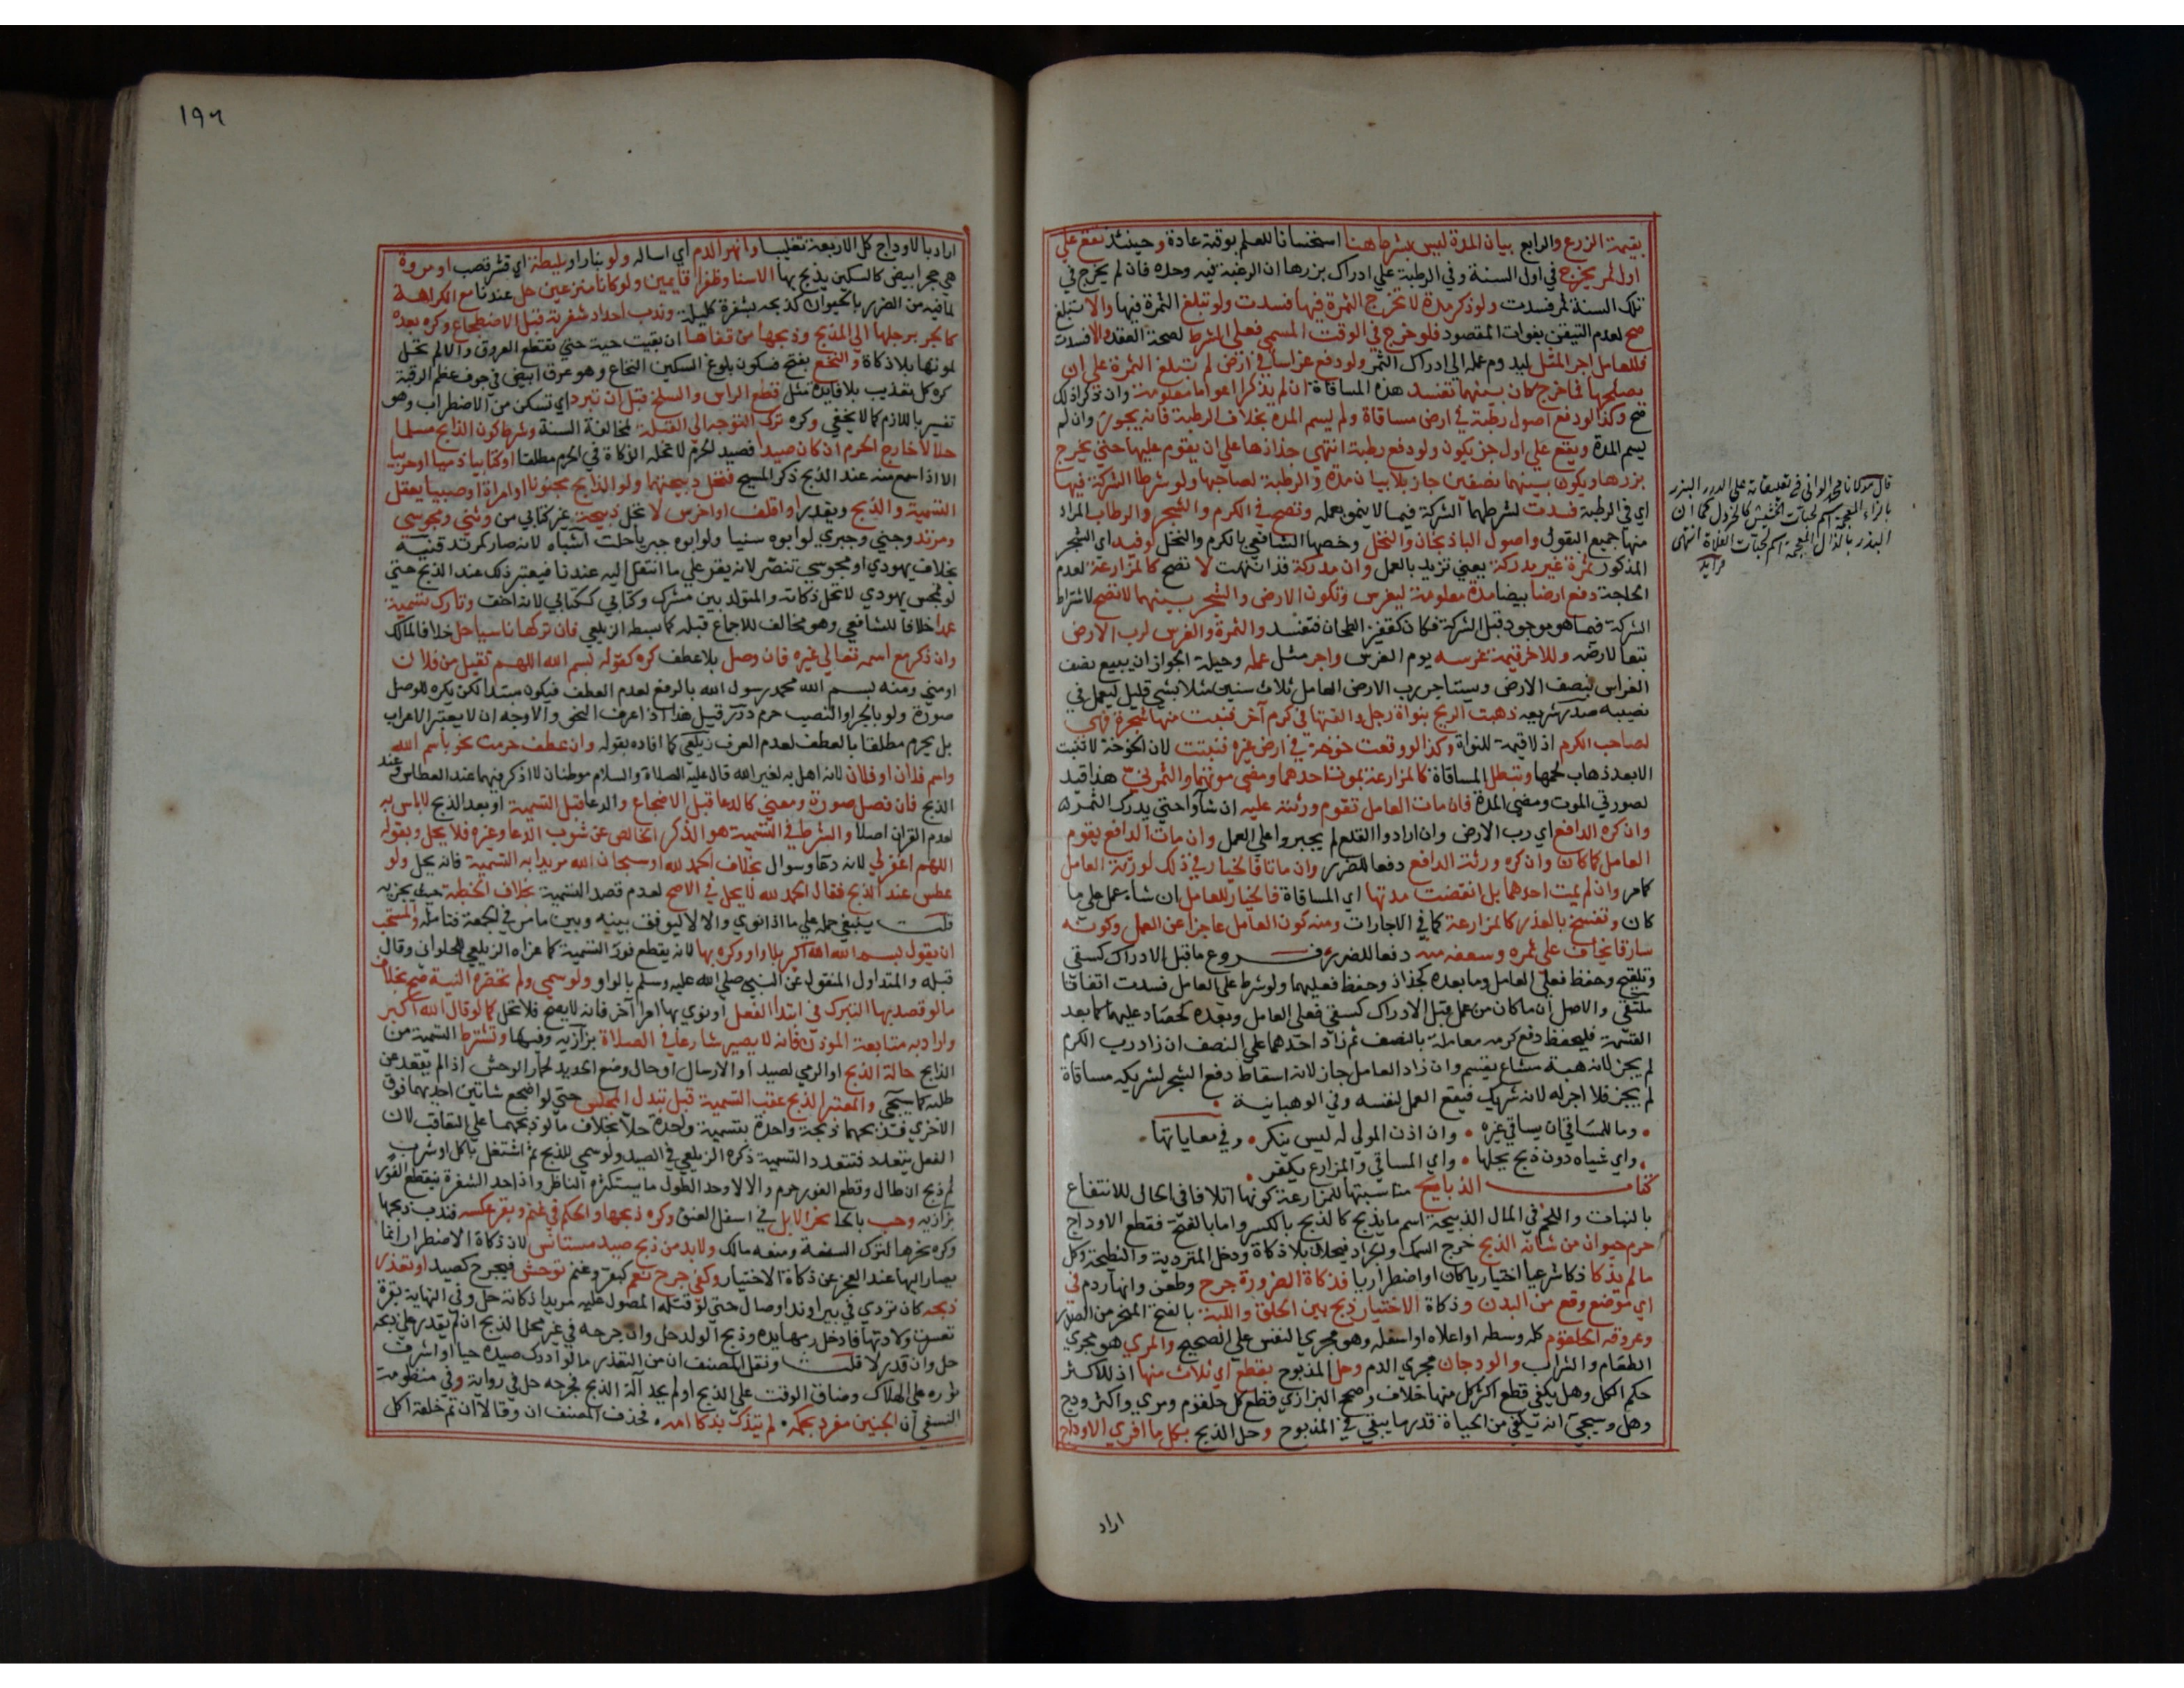 بقيمة الزرع والرابع بيان المدة ليس بشرط هنا استحسانا للعلم بوقته عادة وحينئذ يقع علي
اول ثمر يخرج في اول السنة وفي الرطبة علي ادراك بزرها ان الرغبة فيه وحده فان لم يخرج في
تلك السنة ثمر فسدت ولو ذكر مدة لا تخرج الثمرة فيها فسدت ولو تبلغ الثمرة فيها او لا تبلغ
صح لعدم التيقن بفوات المقصود فلو خرج في الوقت المسمي فعلي الشرط لصحة العقد والا فسدت
فللعامل اجر المثل ليدوم عمله الي ادراك الثمر ولو دفع غراسا في ارض لم تبلغ الثمرة علي ان
يصلحها فما خرج كان بينهما تفسد هذه المساقاة ان لم يذكرا اعواما معلومة وان ذكرا ذلك
صح وكذا لو دفع اصول رطبة في ارض مساقاة ولم يسم المدة بخلاف الرطبة فانه يجوز وان لم
يسم المدة ويقع علي اول جز يكون ولو دفع رطبة انتهي جذاذها علي ان يقوم عليها حتي يخرج
بزرها ويكون بينهما نصفين جاز بلا بيان مدة والرطبة لصاحبها ولو شرطا الشركة فيها
اي في الرطبة فسدت لشرطهما الشركة فيما لا ينمو بعمله وتصح في الكرم والشجر والرطاب المراد
منها جميع البقول واصول الباذنجان والنخل وخصها الشافعي بالكرم والنخل لو فيه اي الشجر
المذكور ثمرة غير مدركة يعني تزيد بالعمل وان مدركة قد انتهت لا تصح كالمزارعة لعدم
الحاجة دفع ارضا بيضا مدة معلومة ليغرس وتكون الارض والشجر بينهما لا تصح لاشتراط
الشركة فيما هو موجود قبل الشركة فكان كقفيز الطحان فتفسد والثمرة والغرس لرب الارض
تبعا لارضه وللاخر قيمة غرسه يوم الغرس واجر مثل عمله وحيلة الجواز ان يبيع نصف
الغراس بنصف الارض ويستاجر رب الارض العامل ثلاث سنين مثلا بشي قليل ليعمل في
نصيبه صدر شريعه ذهبت الريح بنواة رجل والقتها في كرم آخر فنبت منها شجرة فهي
لصاحب الكرم اذ لا قيمة للنواة وكذا لو وقعت خوخة في ارض غيره فنبتت لان الخوخة لا تنبت
الا بعد ذهاب لحمها وتبطل المساقاة كالمزارعة بموت احدهما ومضي مدتها والثمر ني هذا قيد
لصورتي الموت ومضي المدة فان مات العامل تقوم ورثته عليه ان شاؤا حتي يدرك الثمر
وان كره الدافع اي رب الارض وان ارادوا القلع لم يجبروا علي العمل وان مات الدافع يقوم
العامل كما كان وان كره ورثة الدافع دفعا للضرر وان ماتا فالخيار في ذلك لورثة العامل
كما مر وان لم يمت احدهما بل انقضت مدتها اي المساقاة فالخيار للعامل ان شا عمل علي ما
كان وتفسخ بالعذر كالمزارعة كما في الاجارات ومنه كون العامل عاجزا عن العمل وكونه
سارقا يخاف علي ثمره وسعفه منه دفعا للضرر فروع ما قبل الادراك كسقي
وتلقيح وحفظ فعلي العامل وما بعده كجذاذ وحفظ فعليهما ولو شرط علي العامل فسدت اتفاقا
ملتقي والاصل ان ما كان من عمل قبل الادراك كسقي فعلي العامل وبعده كحصاد عليهما كما بعد
القسمة فليحفظ دفع كرمه معاملة بالنصف ثم زاد احدهما علي النصف ان زاد رب الكرم
لم يجز لانه هبة مشاع يقسم وان زاد العامل جاز لانه اسقاط دفع الشجر لشريكه مساقاة
لم يجز فلا اجر له لانه شريك فيقع العمل لنفسه وفي الوهبانية
وما للمساقي ان يساقي غيره وان اذن المولي له ليس ينكر وفي معاياتها
واي شياه دون ذبح يحلها واي المساقي والمزارع يكفر
كتاب الذبايح مناسبتها للمزارعة كونها اتلافا في الحال للانتفاع
بالنبات واللحم في المال الذبيحة اسم ما يذبح كالذبح بالكسر واما بالفتح فقطع الاوداج
حرم حيوان من شانه الذبح خرج السمك والجراد فيحلان بلا ذكاة ودخل المتردية والنطيحة وكل
ما لم يذكا ذكا شرعيا اختياريا كان او اضطراريا فذكاة الضرورة جرح وطعن وانهار دم في
اي موضع وقع من البدن وذكاة الاختيار ذبح بين الحلق واللبة بالفتح المنحر من الصدر
وعروقه الحلقوم كله وسطه او اعلاه او اسفله وهو مجري النفس علي الصحيح والمري هو مجري
الطعام والشراب والودجان مجري الدم وحل المذبوح بقطع اي ثلاث منها اذ للاكثر
حكم الكل وهل يكفي قطع اكثر كل منها خلاف وصحح البزازي قطع كل حلقوم ومري واكثر ودج
وهل وسيجي انه يكفي من الحياة قدر ما يبقي في المذبوح وحل الذبح بكل ما افري الاوداج
اراد
قال مولانا محمد الواني في تعليقاته علي الدرر البزر
بالزاء المعجمة اسم لحبات الحشيش كالخردل كما ان
البذر بالذال المعجمة اسم لحبات الغلاة انتهي
١٩٦
اراد بالاوداج كل الاربعة تغليبا وانهر الدم اي اساله ولو بنار او بليطة اي قشر قصب او مروة
هي حجر ابيض كالسكين يذبح بها الا سنا وظفرا قايمين ولو كانا منزوعين حل عندنا مع الكراهة
لما فيه من الضرر بالحيوان كذبحه بشفرة كليلة وندب احداد شفرته قبل الاضطجاع وكره بعده
كالجر برجلها الي المذبح وذبحها من قفاها ان بقيت حية حتي تقطع العروق والا لم تحل
لموتها بلا ذكاة والنخع بفتح فسكون بلوغ السكين النخاع وهو عرق ابيض في جوف عظم الرقبة
كره كل تعذيب بلا فايدة مثل قطع الراس والسلخ قبل ان تبرد اي تسكن من الاضطراب وهو
تفسير باللازم كما لا يخفي وكره ترك التوجه الي القبلة لمخالفة السنة وشرط كون الذابح مسلما
حلالا خارج الحرم ان كان صيدا فصيد الحرم لا تحله الذكاة في الحرم مطلقا او كتابيا ذميا او حربيا
الا اذا سمع منه عند الذبح ذكر المسيح فتحل ذبيحتهما ولو الذابح مجنونا او امراة او صبيا يعقل
التسمية والذبح ويقدر او اقلف او اخرس لا تحل ذبيحة غير كتابي من وثني ومجوسي
ومرتد وجني وجبري لو ابوه سنيا ولو ابوه جبريا حلت اشباه لانه صار كمرتد قنيه
بخلاف يهودي او مجوسي تنصر لانه يقر علي ما انتقل اليه عندنا فيعتبر ذلك عند الذبح حتي
لو تمجس يهودي لا تحل ذكاته والمتولد بين مشرك وكتابي ككتابي لانه اخف وتارك تسمية
عمدا خلافا للشافعي وهو مخالف للاجماع قبله كما بسطه الزيلعي فان تركها ناسيا حل خلافا لمالك
وان ذكر مع اسمه تعالي غيره فان وصل بلا عطف كره كقوله بسم الله اللهم تقبل من فلان
او مني ومنه بسم الله محمد رسول الله بالرفع لعدم العطف فيكون مبتدا لكن يكره للوصل
صورة ولو بالجر او النصب حرم درر قيل هذا اذا عرف النحو والاوجه ان لا يعتبر الاعراب
بل يحرم مطلقا بالعطف لعدم العرف زيلعي كما افاده بقوله وان عطف حرمت نحو باسم الله
واسم فلان او فلان لانه اهل به لغير الله قال عليه الصلاة والسلام موطنان لا اذكر فيهما عند العطاس وعند
الذبح فان فصل صورة ومعني كالدعا قبل الاضجاع والدعا قبل التسمية او بعد الذبح لا باس به
لعدم القران اصلا والشرط في التسمية هو الذكر الخالص عن شوب الدعا وغيره فلا يحل بقوله
اللهم اغفر لي لانه دعا وسوال بخلاف الحمد لله او سبحان الله مريدا به التسمية فانه يحل ولو
عطس عند الذبح فقال الحمد لله لا يحل في الاصح لعدم قصد التسمية بخلاف الخطبة حيث يجزيه
قلت ينبغي حمله علي ما اذا نوي والا لا ليوفق بينه وبين ما مر في الجمعة فتامله والمستحب
ان يقول بسم الله الله اكبر بلا واو وكره بها لانه يقطع فور التسمية كما عزاه الزيلعي للحلواني وقال
قبله والمتداول المنقول عن النبي صلي الله عليه وسلم بالواو ولو سمي ولم تحضره النية صح بخلاف
ما لو قصد بها التبرك في ابتدا الفعل او نوي بها امرا آخر فانه لا يصح فلا تحل كما لو قال الله اكبر
واراد به متابعة الموذن فانه لا يصير شارعا في الصلاة بزازيه وفيها وتشترط التسمية من
الذابح حالة الذبح او الرمي لصيد او الارسال او حال وضع الحديد لحمار الوحش اذا لم يقعد عن
طلبه كما سيجي والمعتبر الذبح عقب التسمية قبل تبدل المجلس حتي لو اضجع شاتين احديهما فوق
الاخري فذبحهما ذبحة واحدة بتسمية واحدة حلا بخلاف ما لو ذبحهما علي التعاقب لان
الفعل يتعدد فتتعدد التسمية ذكره الزيلعي في الصيد ولو سمي للذبح ثم اشتغل باكل او شرب
ثم ذبح ان طال وقطع الفور حرم والا لا وحد الطول ما يستكثره الناظر واذا حد الشفرة ينقطع الفور
بزازيه وحب بالحا نحر الابل في اسفل العنق وكره ذبحها والحكم في غنم وبقر عكسه فندب ذبحها
وكره نحرها لترك السنة ومنعه مالك ولابد من ذبح صيد مستانس لان ذكاة الاضطرار انما
يصار اليها عند العجز عن ذكاة الاختيار وكفي جرح نعم كبقر وغنم توحش فيجرح كصيد او تعذر
ذبحه كان تردي في بير او ند او صال حتي لو قتله المصول عليه مريدا ذكاته حل وفي النهاية بقرة
تعسرت ولادتها فادخل ربها يده وذبح الولد حل وان جرحه في غير محل الذبح ان لم يقدر علي ذبحه
حل وان قدر لا قلت ونقل المصنف ان من التعذر ما لو ادرك صيده حيا او اشرف
ثوره علي الهلاك وضاق الوقت علي الذبح او لم يجد آلة الذبح فجرحه حل في رواية وفي منظومة
النسفي ان الجنين مفرد بحكمه لم يتذك بذكا امه فحذف المصنف ان وقالا ان تم خلقه اكل